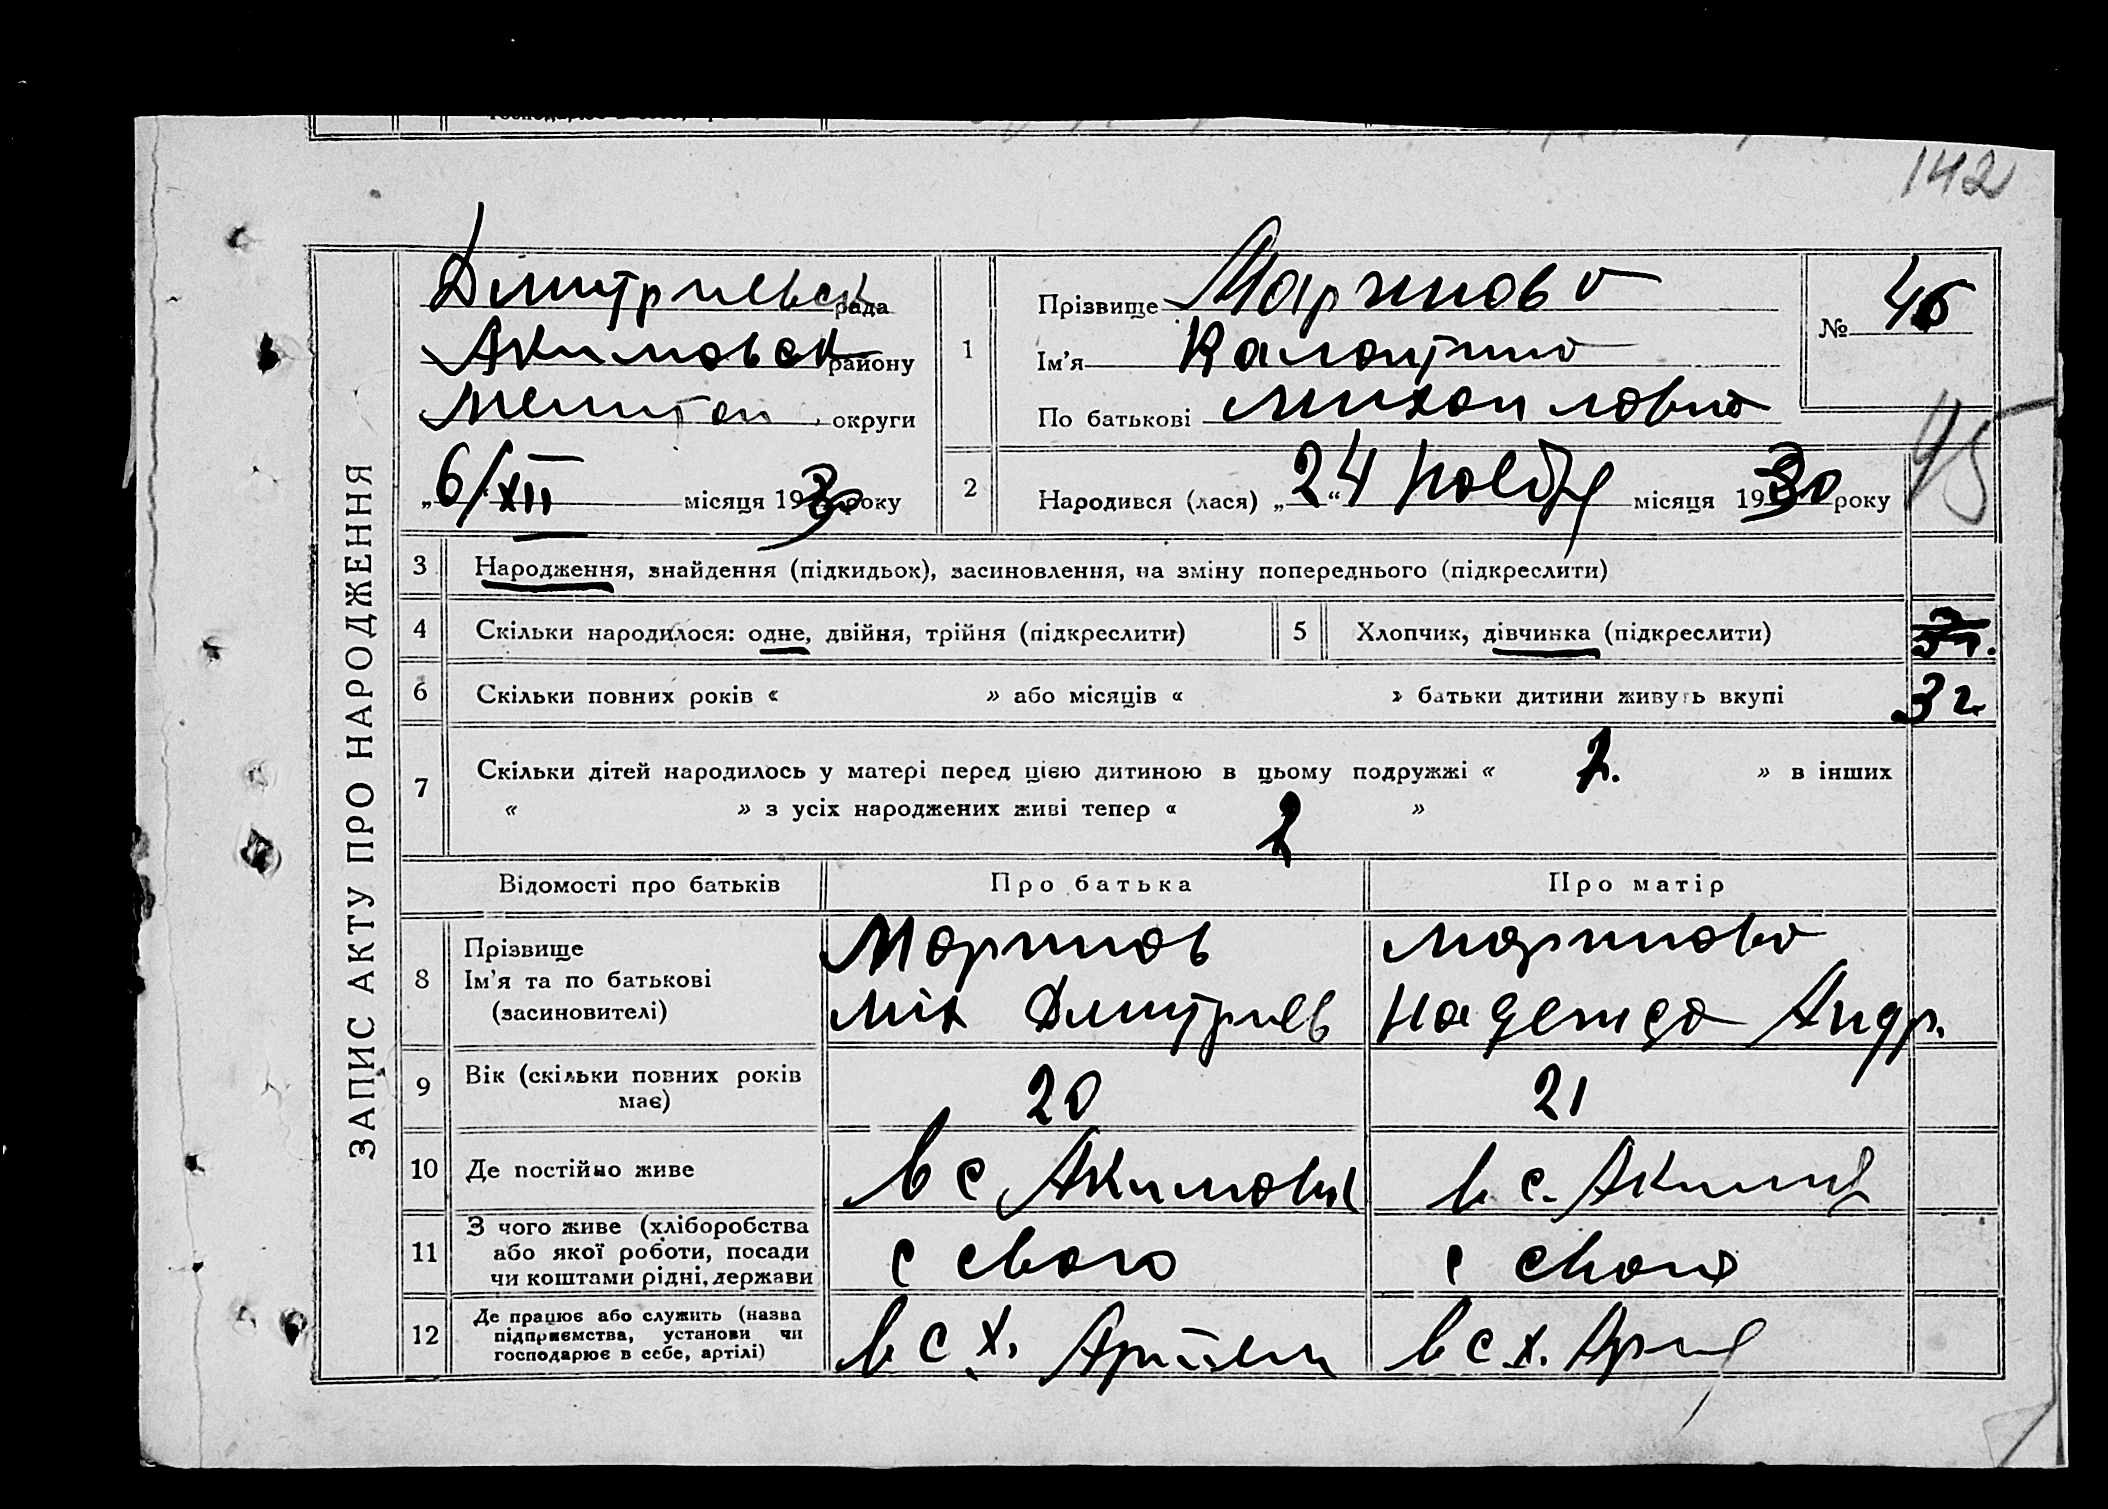 142
Дмитриевск рада
Акимовск району
Мелитоп округи
„6/XII місяця 1930 року
1
Прізвище Маринова
Ім'я Валентина
По батькові Михайловна
№ 46
45
2
Народився (лася) „24“ ноября місяця 1930 року
ЗАПИС АКТУ ПРО НАРОДЖЕННЯ
3 Народження, знайдення (підкидьок), засиновлення, на зміну попереднього (підкреслити)
4 Скільки народилося: одне, двійня, трійня (підкреслити)
5 Хлопчик, дівчинка (підкреслити)
6 Скільки повних років « » або місяців « » батьки дитини живуть вкупі
3 г.
7 Скільки дітей народилось у матері перед цією дитиною в цьому подружжі « 2. » в інших
« » з усіх народжених живі тепер « 2 »
Відомості про батьків Про батька Про матір
8 Прізвище
Ім'я та по батькові
(засновителі)
Маринов
Мих Дмитриев
Маринова
Надежда Андр.
9 Вік (скільки повних років
має)
20 21
10 Де постійно живе
в с Акимовк
в с. Аким
11 З чого живе (хліборобства
або якої роботи, посади
чи коштами рідні, держави
с свого
с свого
12 Де працює або служить (назва
підприємства, установи чи
господарює в себе, артілі)
в с х. Артели
в с х. Арт